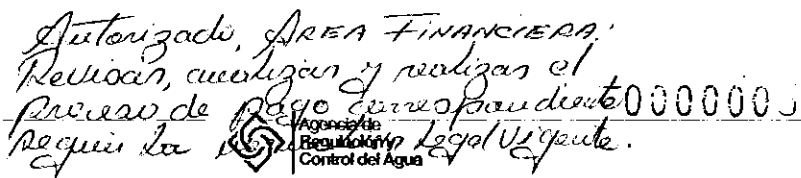 Autorizado, AREA FINANCIERA:
Revisar, analizar y realizar el
proceso de pago correspondiente 000000
según la Legal Vigente.
Agencia de
Regulación y
Control del Agua